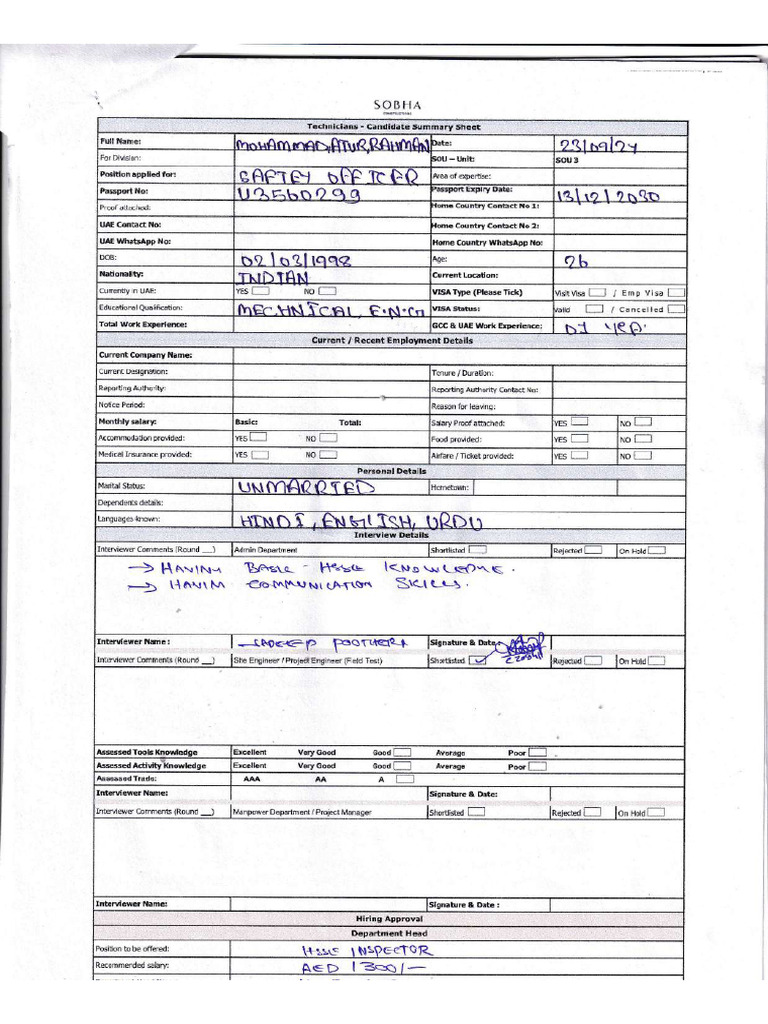 SOBHA
CONSTRUCTIONS
Technicians - Candidate Summary Sheet
Full Name: MOHAMMAD,ATUR,RAHMAN Date: 23/09/24
For Division: SOU – Unit: SOU 3
Position applied for: SAFTEY OFFICER Area of expertise:
Passport No: U3560299 Passport Expiry Date: 13/12/2030
Proof attached: Home Country Contact No 1:
UAE Contact No: Home Country Contact No 2:
UAE WhatsApp No: Home Country WhatsApp No:
DOB: 02/03/1998 Age: 26
Nationality: INDIAN Current Location:
Currently in UAE: YES NO VISA Type (Please Tick) Visit Visa / Emp Visa
Educational Qualification: MECHNICAL E.N.G VISA Status: Valid / Cancelled
Total Work Experience: GCC & UAE Work Experience: 01
Current / Recent Employment Details
Current Company Name:
Current Designation: Tenure / Duration:
Reporting Authority: Reporting Authority Contact No:
Notice Period: Reason for leaving:
Monthly salary: Basic: Total: Salary Proof attached: YES NO
Accommodation provided: YES NO Food provided: YES NO
Medical Insurance provided: YES NO Airfare / Ticket provided: YES NO
Personal Details
Marital Status: UNMARRIED Hometown:
Dependents details:
Languages known: HINDI, ENGLISH, URDU
Interview Details
Interviewer Comments (Round __) Admin Department Shortlisted Rejected On Hold
→ HAVING BASIC - HSSE KNOWLEDGE.
→ HAVIN COMMUNICATION SKILLS.
Interviewer Name : Signature & Date:
Interviewer Comments (Round __) Site Engineer / Project Engineer (Field Test) Shortlisted ✓ Rejected On Hold
Assessed Tools Knowledge Excellent Very Good Good Average Poor
Assessed Activity Knowledge Excellent Very Good Good Average Poor
Assessed Trade: AAA AA A
Interviewer Name: Signature & Date:
Interviewer Comments (Round __) Manpower Department / Project Manager Shortlisted Rejected On Hold
Interviewer Name: Signature & Date :
Hiring Approval
Department Head
Position to be offered: HSSE INSPECTOR
Recommended salary: AED 1300/-